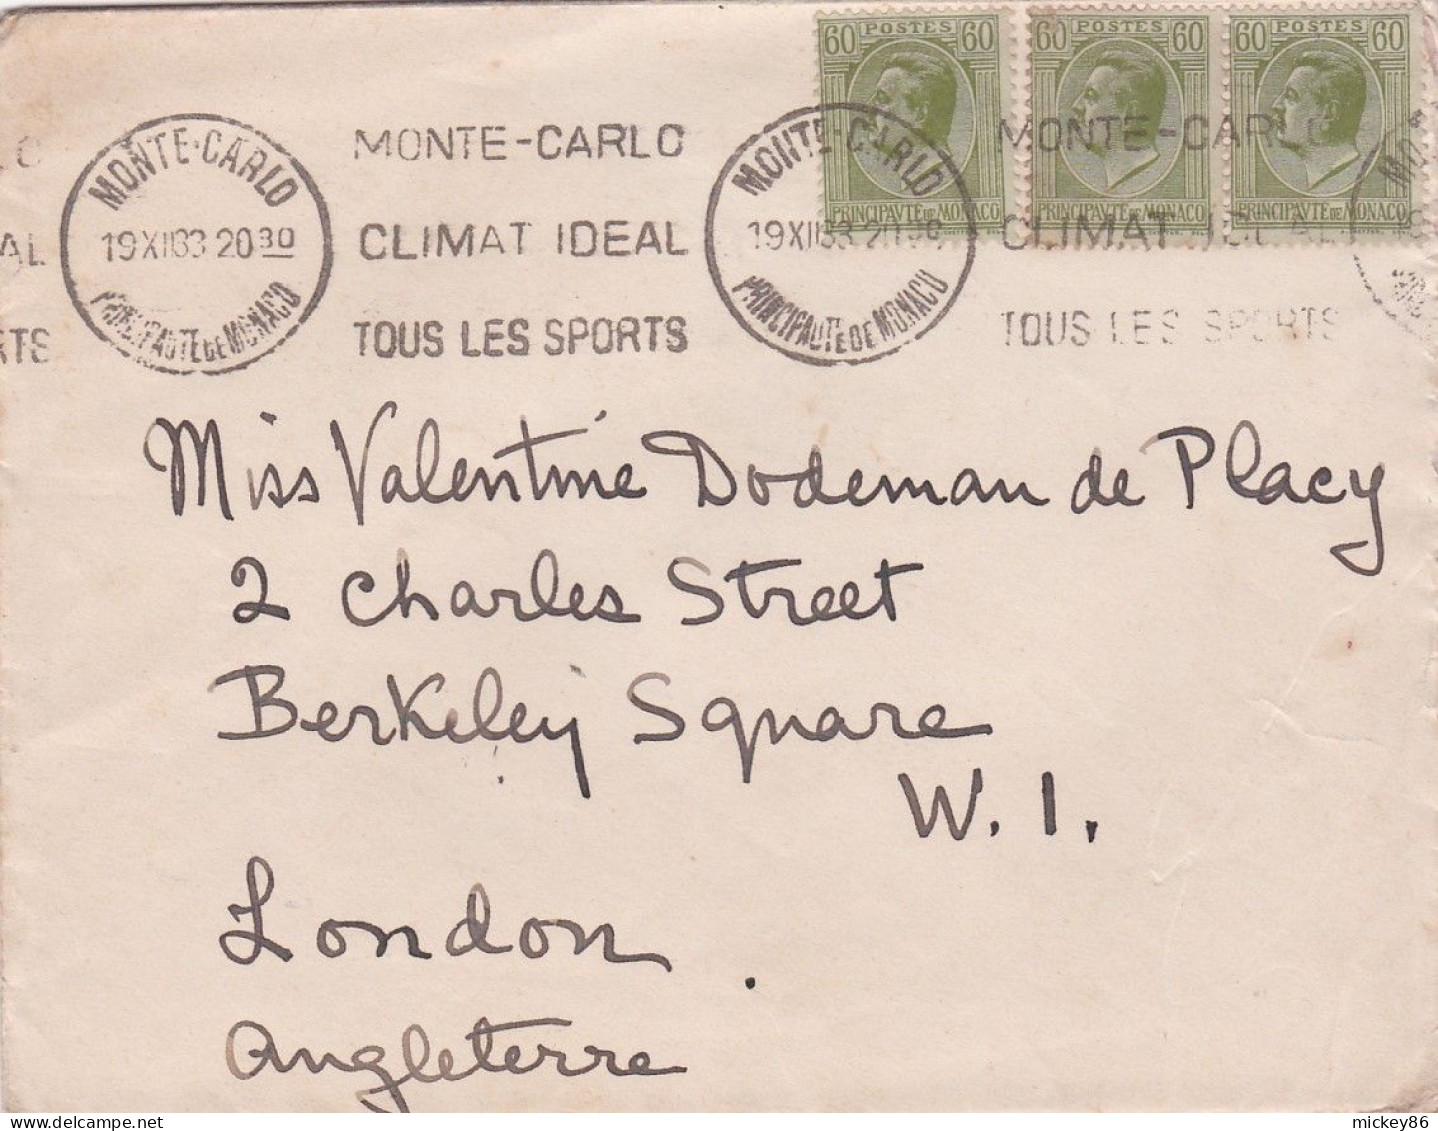 60 POSTES 60
PRINCIPAVTE DE MONACO
60 POSTES 60
PRINCIPAVTE DE MONACO
60 POSTES 60
PRINCIPAVTE DE MONACO
MONTE-CARLO
19 XII 33 20 30
PRINCIPAUTE DE MONACO
MONTE-CARLO
CLIMAT IDEAL
TOUS LES SPORTS
MONTE-CARLO
19 XII 33 20 30
PRINCIPAUTE DE MONACO
MONTE-CARLO
CLIMAT IDEAL
TOUS LES SPORTS
AL
RTS
Miss Valentine Dodeman de Placy
2 Charles Street
Berkeley Square
W. 1.
London
Angleterre
delcampe.net
mickey86